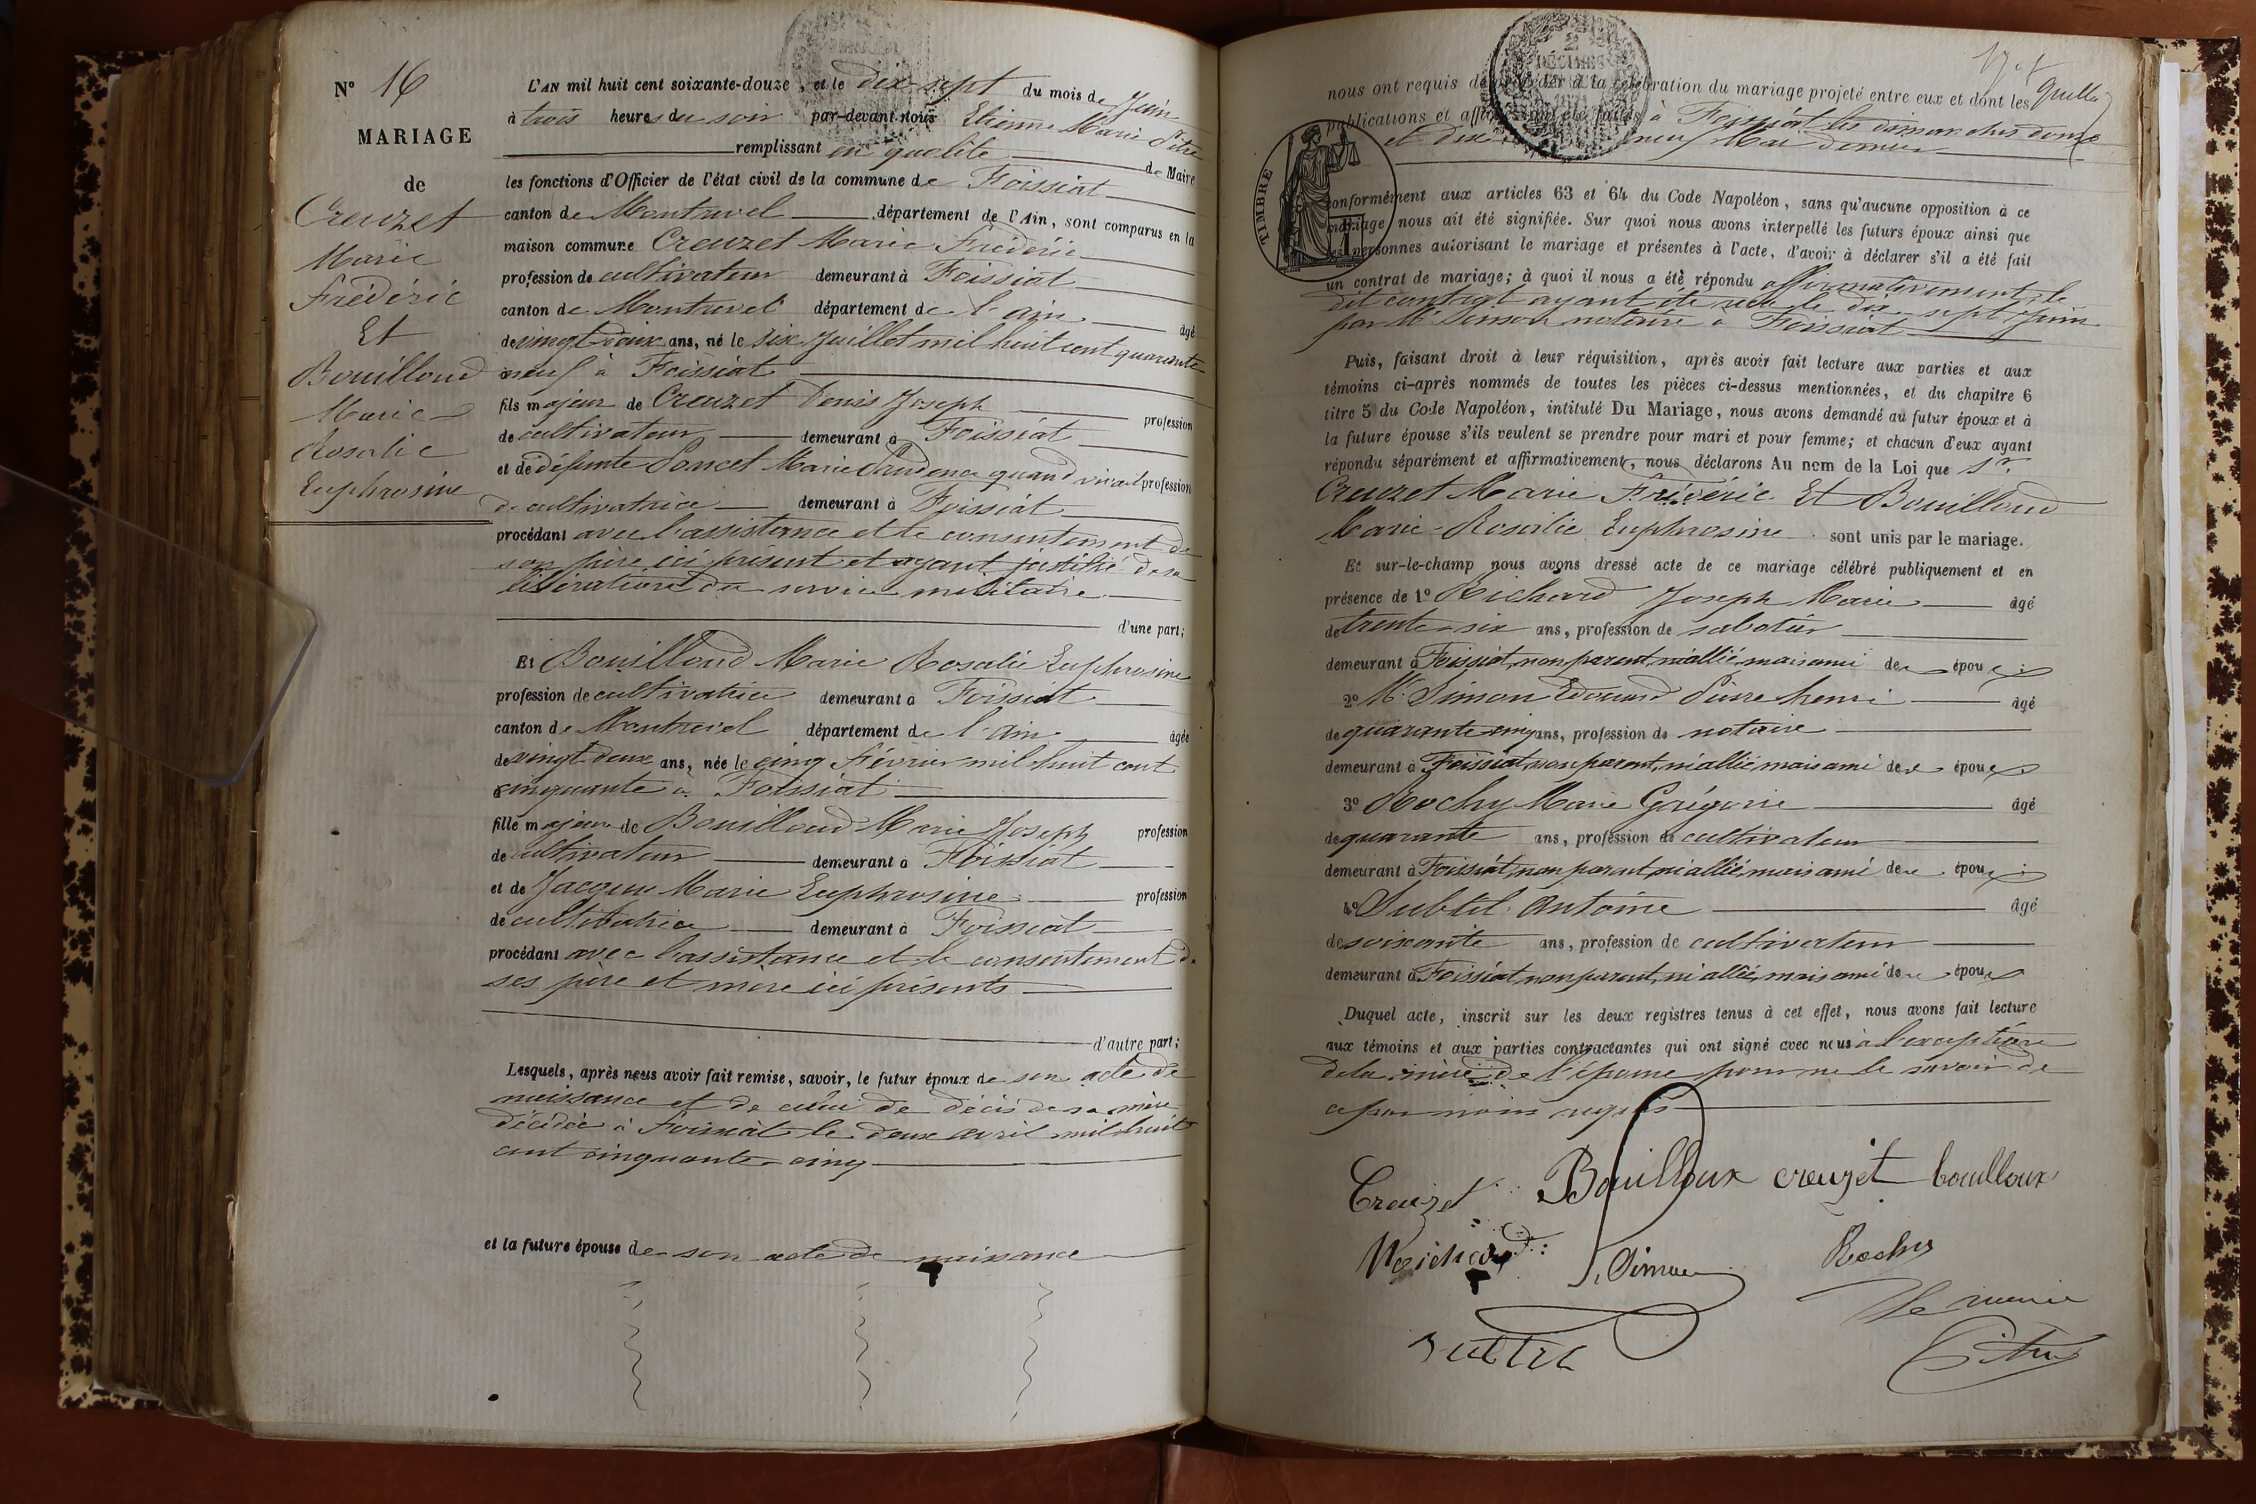 N° 16
MARIAGE
de
Creuzet
Marie
Frédéric
Et
Bouilloud
Marie
Rosalie
Euphrosine
L'AN mil huit cent soixante-douze, et le dix sept du mois de Juin
à trois heures du soir par-devant nous Etienne Marie Pitre
remplissant en qualité de Maire
les fonctions d'Officier de l'état civil de la commune de Foissiat
canton de Montrevel département de l'Ain, sont comparus en la
maison commune Creuzet Marie Frédéric
profession de cultivateur demeurant à Foissiat
canton de Montrevel département de l'ain âgé
de vingt deux ans, né le six Juillet mil huit cent quarante
neuf à Foissiat
fils majeur de Creuzet Denis Joseph profession
de cultivateur demeurant à Foissiat
et de défunte Poncet Marie Prudence quand vivait profession
de cultivatrice demeurant à Foissiat
procédant avec l'assistance et le consentement de
son père ici présent et ayant justifié de sa
libération du service militaire
d'une part;
Et Bouilloud Marie Rosalie Euphrosine
profession de cultivatrice demeurant à Foissiat
canton de Montrevel département de l'ain âgée
de vingt deux ans, née le cinq Février mil huit cent
cinquante à Foissiat
fille majeure de Bouilloud Marie Joseph profession
de cultivateur demeurant à Foissiat
et de Jacquin Marie Euphrosine profession
de cultivatrice demeurant à Foissiat
procédant avec l'assistance et le consentement de
ses père et mère ici présents
d'autre part;
Lesquels, après nous avoir fait remise, savoir, le futur époux de son acte de
naissance et de celui de décès de sa mère
décédée à Foissiat le deux avril mil huit
cent cinquante-cinq
et la future épouse de son acte de naissance
2
DÉCIMES
nous ont requis de procéder à la célébration du mariage projeté entre eux et dont les
publications et affiches ont été faites à Foissiat les dimanches douze
et dix neuf Mai dernier
TIMBRE
conformément aux articles 63 et 64 du Code Napoléon, sans qu'aucune opposition à ce
mariage nous ait été signifiée. Sur quoi nous avons interpellé les futurs époux ainsi que
les personnes autorisant le mariage et présentes à l'acte, d'avoir à déclarer s'il a été fait
un contrat de mariage; à quoi il nous a été répondu affirmativement, le
dit contrat ayant été reçu le dix sept Juin
par Me Simon notaire à Foissiat
Puis, faisant droit à leur réquisition, après avoir fait lecture aux parties et aux
témoins ci-après nommés de toutes les pièces ci-dessus mentionnées, et du chapitre 6
titre 5 du Code Napoléon, intitulé Du Mariage, nous avons demandé au futur époux et à
la future épouse s'ils veulent se prendre pour mari et pour femme; et chacun d'eux ayant
répondu séparément et affirmativement, nous déclarons Au nom de la Loi que Sr
Creuzet Marie Frédéric Et Bouilloud
Marie-Rosalie Euphrosine sont unis par le mariage.
Et sur-le-champ nous avons dressé acte de ce mariage célébré publiquement et en
présence de 1° Richard Joseph Marie âgé
de trente-six ans, profession de sabotier
demeurant à Foissiat, non parent, ni allié mais ami des époux;
2° Me Simon Edouard Pierre henri âgé
de quarante cinq ans, profession de notaire
demeurant à Foissiat, non parent, ni allié mais ami des époux
3° Rochy Marie Grégoire âgé
de quarante ans, profession de cultivateur
demeurant à Foissiat, non parent, ni allié, mais ami des époux;
4° Subtil Antoine âgé
de soixante ans, profession de cultivateur
demeurant à Foissiat, non parent, ni allié, mais ami des époux
Duquel acte, inscrit sur les deux registres tenus à cet effet, nous avons fait lecture
aux témoins et aux parties contractantes qui ont signé avec nous à l'exception
de la mère de l'épouse pour ne le savoir de
ce par nous requis
Creuzet Bouilloux creuzet bouilloux
Richard Simon Rochy
Le maire
Subtil Pitre